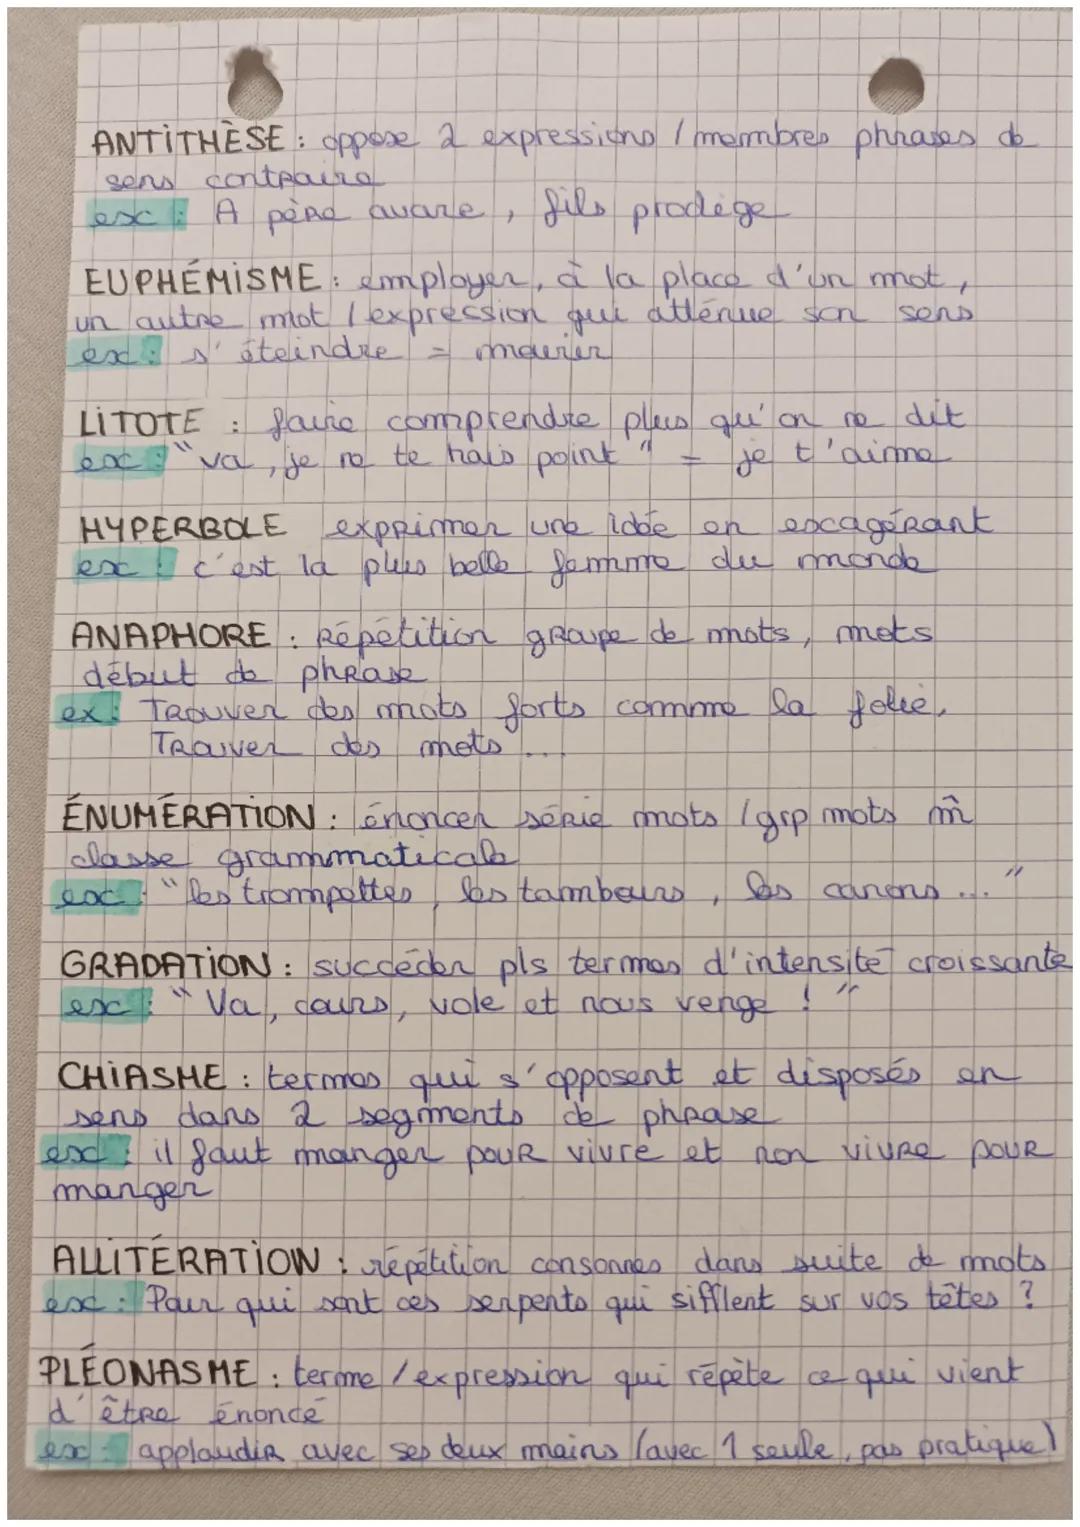 ANTITHÈSE : oppose 2 expressions / membres phrases de
sens contraire
ex : A père avare, fils prodige
EUPHÉMISME : employer, à la place d'un mot,
un autre mot / expression qui atténue son sens
ex : s'éteindre = mourir
LITOTE : faire comprendre plus qu'on ne dit
ex : "va, je ne te hais point" = je t'aime
HYPERBOLE exprimer une idée en exagérant
ex : c'est la plus belle femme du monde
ANAPHORE : Répétition groupe de mots, mots
début de phrase
ex : Trouver des mots forts comme la folie,
Trouver des mots ...
ÉNUMÉRATION : énoncer série mots / grp mots m̂
classe grammaticale
ex : "les trompettes, les tambours, les canons ..."
GRADATION : succéder pls termes d'intensité croissante
ex : "Va, cours, vole et nous venge !"
CHIASME : termes qui s'opposent et disposés en
sens dans 2 segments de phrase
ex : il faut manger pour vivre et non vivre pour
manger
ALLITÉRATION : répétition consonnes dans suite de mots
ex : Pour qui sont ces serpents qui sifflent sur vos têtes ?
PLÉONASME : terme / expression qui répète ce qui vient
d'être énoncé
ex : applaudir avec ses deux mains (avec 1 seule, pas pratique)